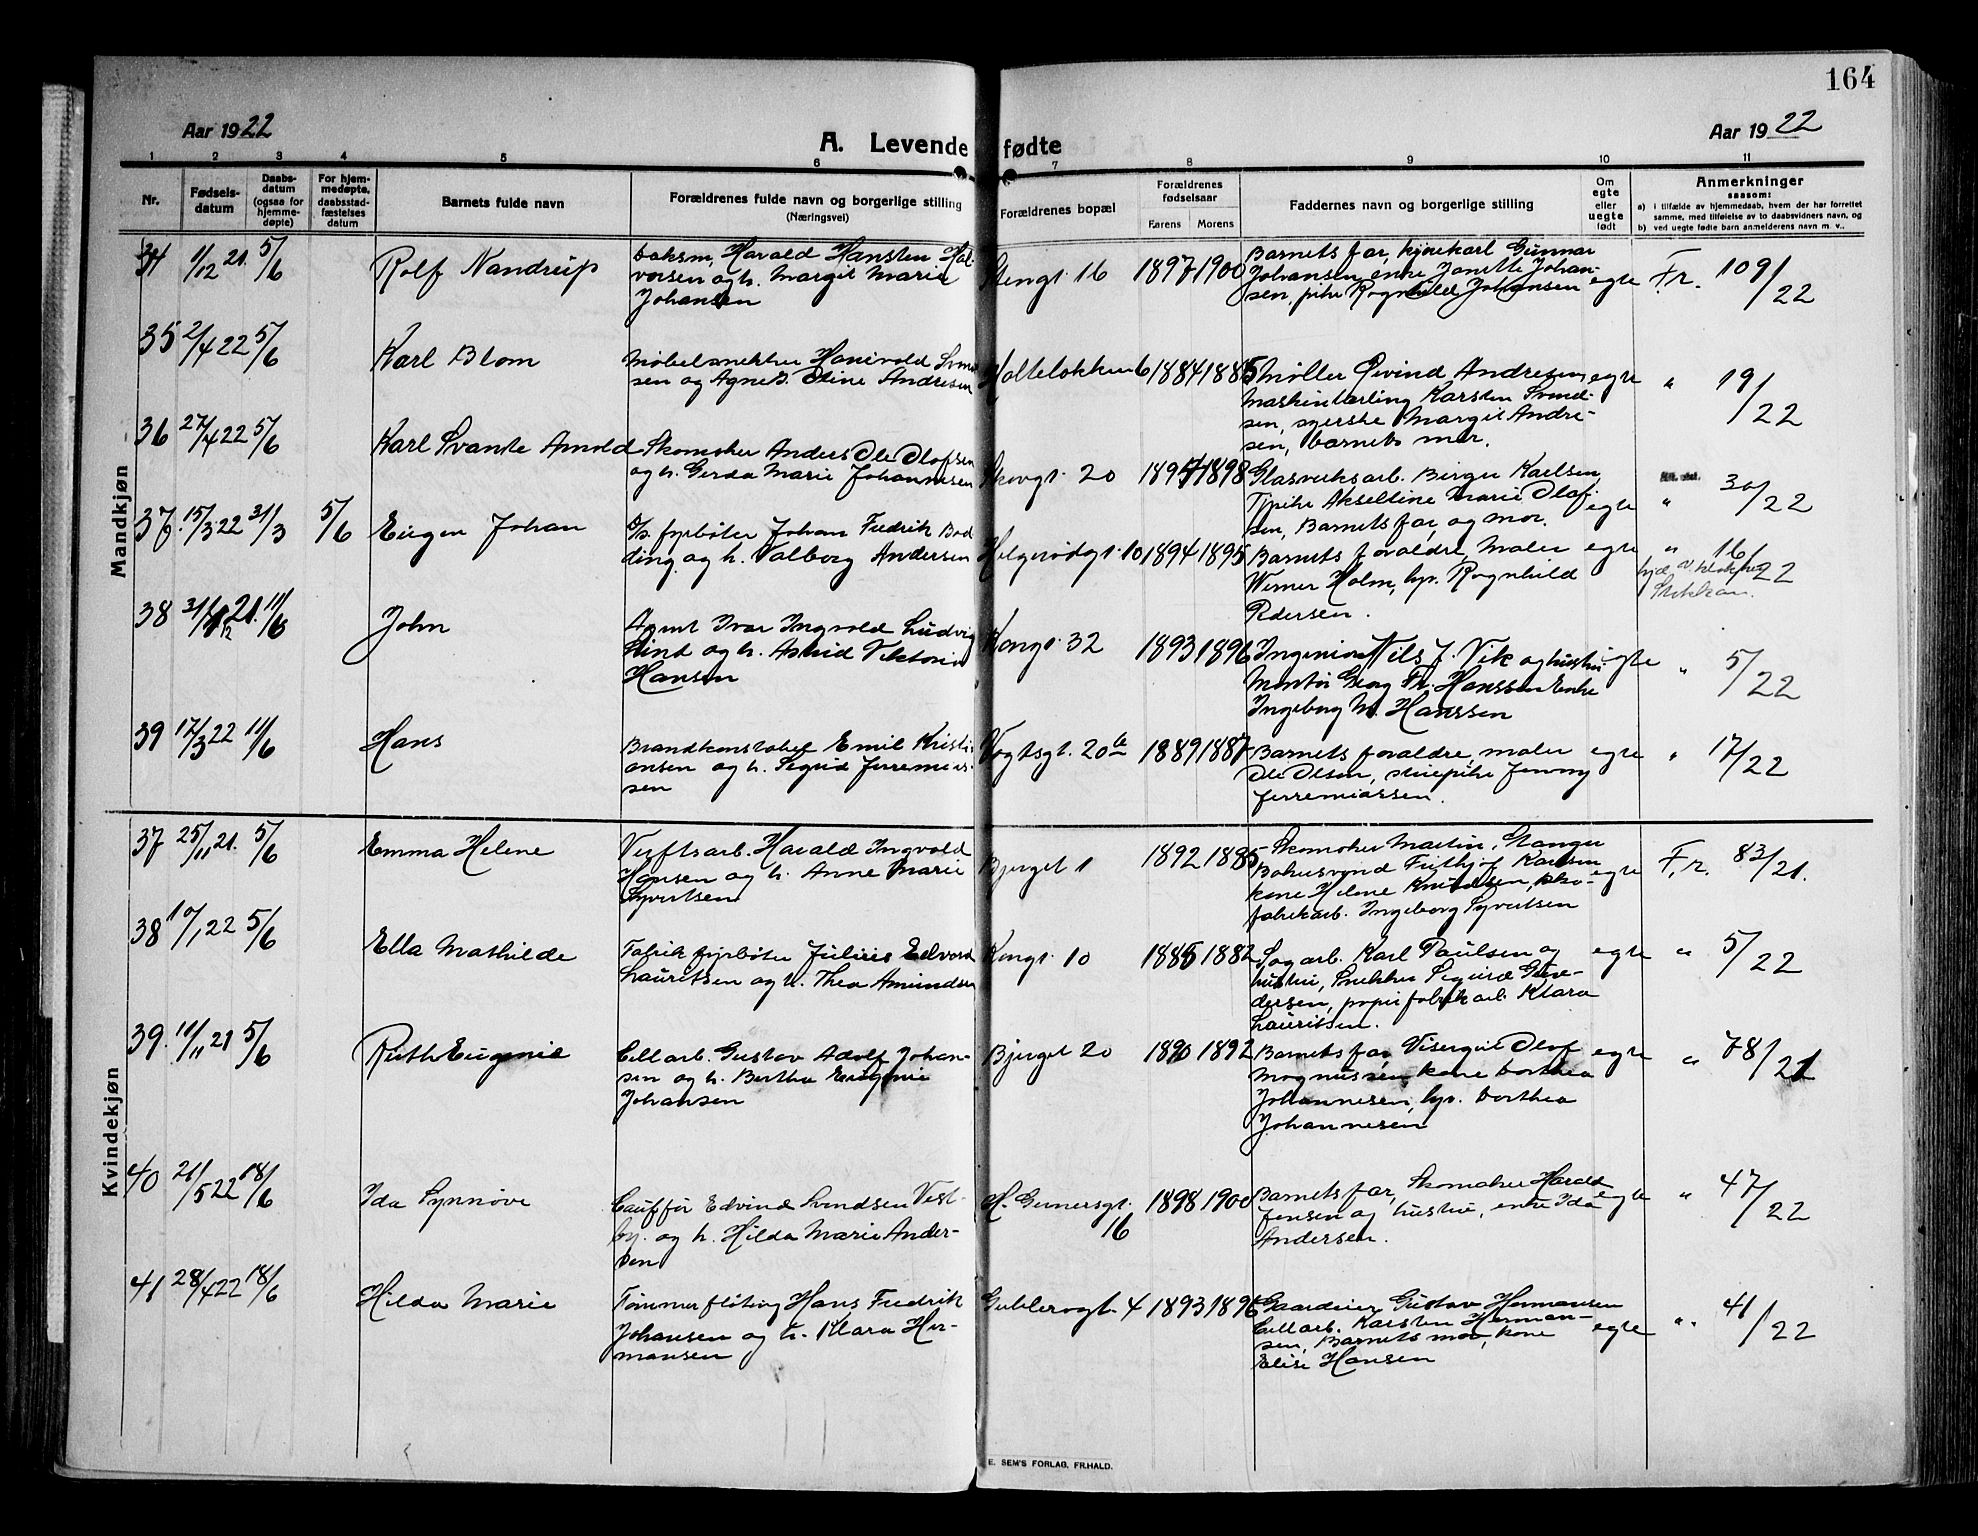 164
Aar 1922
A. Levende fødte
Aar 1922
1 2 3 4 5 6 7 8 9 10 11
Nr.
Fødsels-
datum
Daabs-
datum
(ogsaa for
hjemme-
døpte)
For hjem-
medøpte,
daabsstad-
fæstelses
datum
Barnets fulde navn
Forældrenes fulde navn og borgerlige stilling
(Næringsvei)
Forældrenes bopæl
Forældrenes
fødselsaar
Farens Morens
Faddernes navn og borgerlige stilling
Om
egte
eller
uegte
født
Anmerkninger
saasom:
a) i tilfælde av hjemmedaab, hvem der har forrettet
samme, med tilføielse av to daabsvidners navn, og
b) ved uegte fødte barn anmelderens navn m. v..
Mandkjøn
34 1/12 21. 5/6
Rolf Nandrup
Harald Hansten Hal-
vorsen og h. Margit Marie
Johansen
Stengt. 16 1897 1900
Barnets far, kjørekarl Gunnar
Johansen, enke Janette Johan-
sen, pike Ragnhild Johansen
egte Fr. 109/22
35 2/4 22 5/6
Karl Blom
Møbelsnekker Hanivald Svend-
sen og Agnes Oline Andresen
6 1884 1885
Møller Øivind Andresen,
Maskinlærling Karsten Svend-
sen, syerske Margit Andre-
sen, barnets mor.
egte " 19/22
36 27/4 22 5/6
Karl Svante Arnold
Skomaker Anders Ole Olofsen
og h. Gerda Marie Johannesen
Skovgt. 20 1897 1898
Glasverksarb. Birger Karlsen,
Tjpike Akseltine Marie Olof-
sen, Barnets far, og mor.
egte " 30/22
37. 15/3 22 31/3 5/6
Eugen Johan
D/s fyrbøter Johan Fredrik Bod-
ding og h. Valborg Andersen
Helgerødgt. 10 1894 1895
Barnets foræld­re, Maler
Werner Holm, hp. Ragnhild
Pedersen.
egte " 16/22
38 21. 11/6
John
Agent Ivar Ingvald Ludvig
Lind og h. Astrid Viktoria
Hansen
Kongs. 32 1893 1896
Ingeniør Nils J. Vik og hustru
Montør Georg Th. Hanssen Enke
Ingeborg M. Hanssen
egte " 5/22
39 17/3 22 11/6
Hans
Brandkonstabel Emil Kristi-
ansen og h. Sigrid Jerremias-
sen
Vogtsgt. 20 1889 1887
Barnets forældre, maler
Ole Olsen, stuepike Jenny
Jerremiassen.
egte " 17/22
Kvindekjøn
37 25/11 21. 5/6
Emma Helene
Verftsarb. Harald Ingvald
Hansen og h. Anne Marie
Syvertsen
Bjerget 1 1892 1885
Skomaker Martin Stanger
Frithjof Karlsen
kone Helene Knudsen, sko-
fabrikarb. Ingeborg Syvertsen
egte Fr. 83/21.
38 10/1 22 5/6
Ella Mathilde
Fabrik fyrbøter Julius Edvard
Lauritsen og h. Thea Amundsen
Kongs. 10 1885 1882
Sagarb. Karl Paulsen og
hustru, Snekker Sigurd Gun-
dersen, papirfabrikarb. Klara
Lauritsen.
egte " 5/22
39. 11/11 21 5/6
Ruth Eugenie
Cellarb. Gustav Adolf Johan-
sen og h. Bertha Eugenie
Johansen
Bjerget 20 1890 1892
Barnets far, Visergut Olaf
Magnussen, kone Dorthea
Johannesen, hp. Dorthea
Johannesen
egte " 78/21
40 21/5 22 18/6
Ida Synnøve
Cauffør Edvind Svendsen Vest-
by. og h. Hilda Marie Ander-
sen
H. Genersgt. 16 1898 1900
Barnets far, Skomaker Harald
Jensen og hustru, enke Ida
Andersen.
egte " 47/22
41 28/4 22 18/6
Hilda Marie
Tømmerfløting Hans Fredrik
Johansen og h. Klara Her-
mansen
4 1893 1896
Gaardeier Gustav Hermansen
Cellarb. Karsten Herman-
sen, Barnets mor, kone
Elise Hansen
egte " 41/22
E. SEM'S FORLAG, FR.HALD.